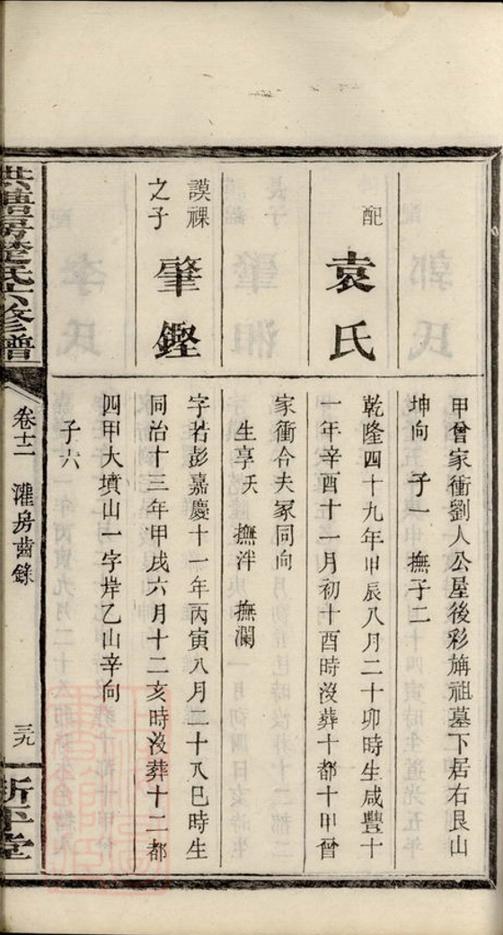 甲曾家衝劉人公屋後彩旃祖墓下居右艮山
坤向 子一 撫子二
配 袁氏
乾隆四十九年甲辰八月二十卯時生咸豐十
一年辛酉十一月初十酉時沒葬十都十甲曾
家衝合夫冢同向
生享夭 撫泮 撫瀾
謨祼之子 肇鏗
字若彭嘉慶十一年丙寅八月二十八巳時生
同治十三年甲戌六月十二亥時沒葬十二都
四甲大墳山一字岸乙山辛向
子六
氏六修譜
卷十二 濯房齒錄
三九